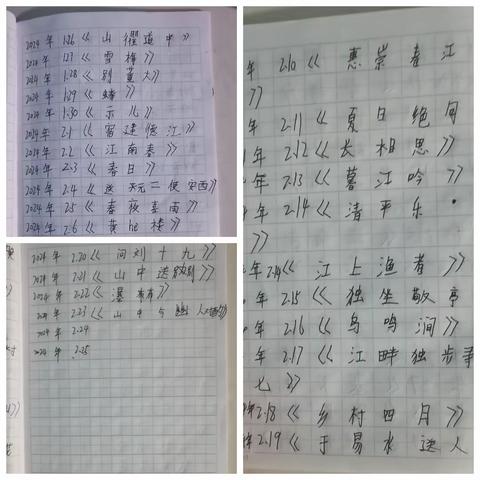 2024年 1.26《山 瞿 道 中》
2024年 1.27《雪 梅》
2024年 1.28《别 董 大》
2024年 1.29《蜂》
2024年 1.30《示 儿》
2024年 2.1《宿 建 德 江》
2024年 2.2《江 南 春》
2024年 2.3《春 日》
2024年 2.4《送 元 二 使 安西》
2024年 2.5《春 夜 喜 雨》
2024年 2.6《黄 he 楼》
2024年 2.20《问 刘 十 九》
2024年 2.21《山 中 送 别》
2024年 2.22《瀑 布》
2024年 2.23《山 中 与 幽 人 对酌》
2024年 2.24
2024年 2.25
年 2.10《惠 崇 春 江
》
年 2.11《夏 日 绝 句
年 2.12《长 相 思》
年 2.13《暮 江 吟》
年 2.14《清 平 乐 ·
》
年 2.14《江 上 渔 者》
年 2.15《独 坐 敬 亭
年 2.16《鸟 鸣 涧》
年 2.17《江 畔 独 步 寻
七》
年 2.18《乡 村 四 月》
年 2.19《于 易 水 送 人